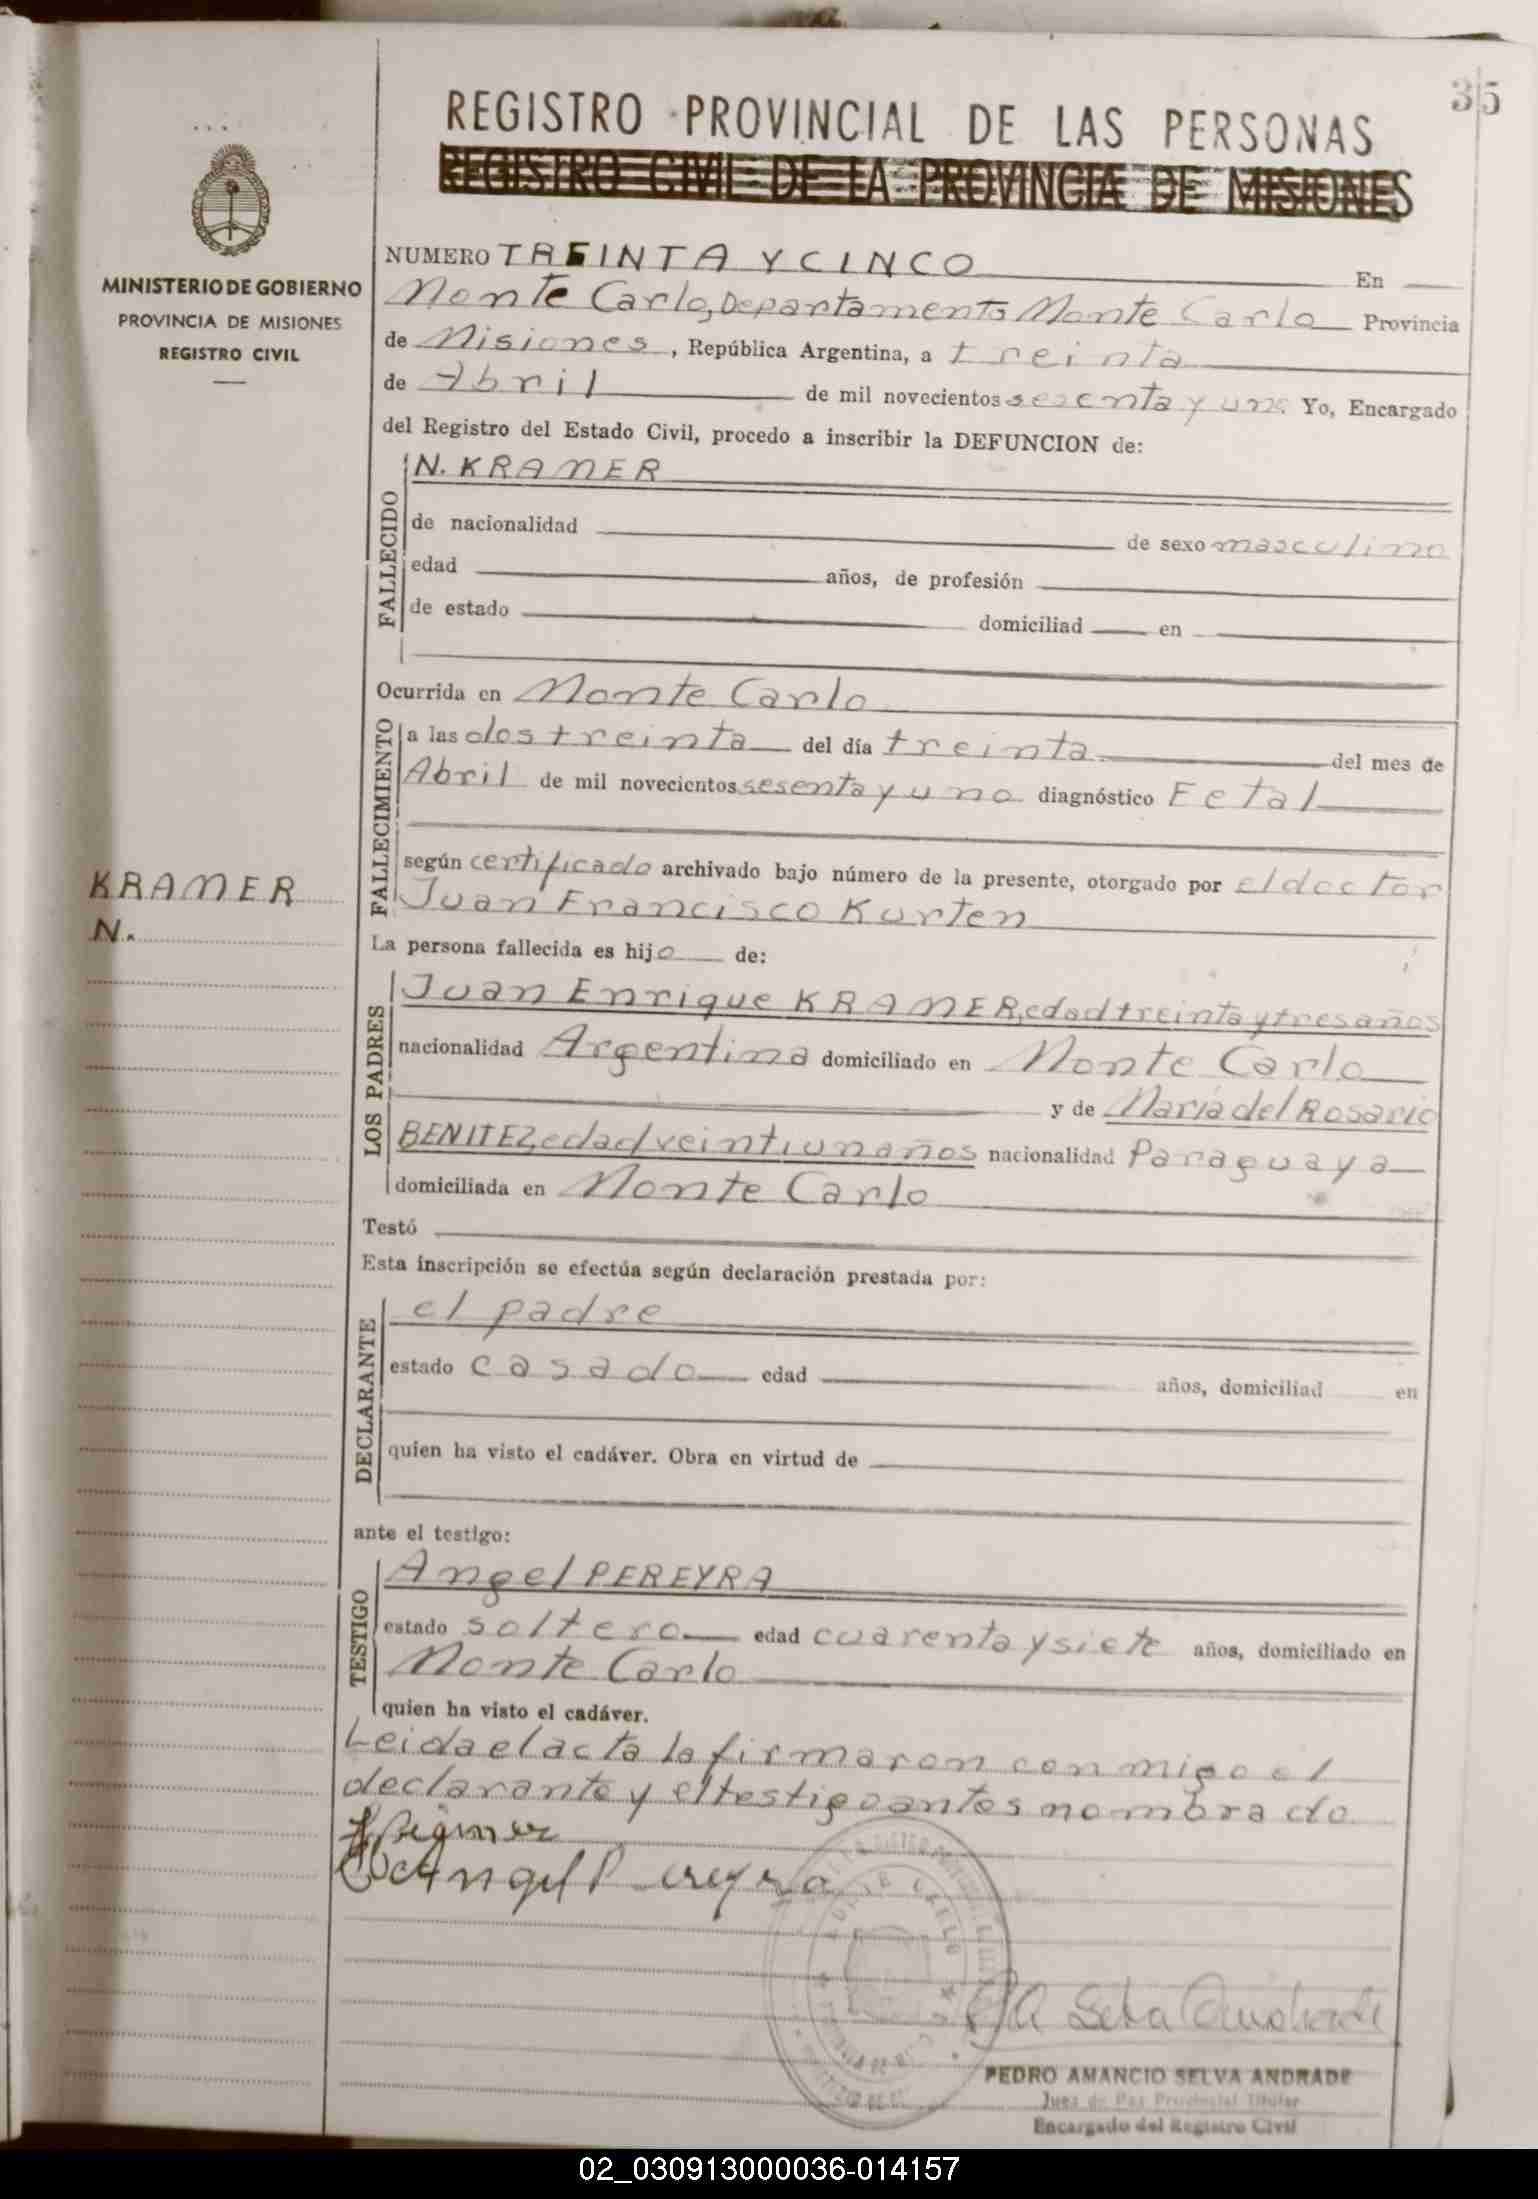 35
REGISTRO PROVINCIAL DE LAS PERSONAS
REGISTRO CIVIL DE LA PROVINCIA DE MISIONES
MINISTERIO DE GOBIERNO
PROVINCIA DE MISIONES
REGISTRO CIVIL
NUMERO TREINTA Y CINCO En
Monte Carlo, Departamento Monte Carlo Provincia
de Misiones, República Argentina, a treinta
de Abril de mil novecientos sesenta y uno Yo, Encargado
del Registro del Estado Civil, procedo a inscribir la DEFUNCION de:
FALLECIDO
N. KRAMER
de nacionalidad de sexo masculino
edad años, de profesión
de estado domiciliad en
Ocurrida en Monte Carlo
FALLECIMIENTO
a las dos treinta del día treinta del mes de
Abril de mil novecientos sesenta y uno diagnóstico Fetal
según certificado archivado bajo número de la presente, otorgado por el doctor
Juan Francisco Kurten
KRAMER
N.
La persona fallecida es hijo de:
LOS PADRES
Juan Enrique KRAMER, edad treinta y tres años
nacionalidad Argentina domiciliado en Monte Carlo
y de María del Rosario
BENITEZ, edad veintiun años nacionalidad Paraguaya
domiciliada en Monte Carlo
Testó
Esta inscripción se efectúa según declaración prestada por:
DECLARANTE
el padre
estado casado edad años, domiciliad en
quien ha visto el cadáver. Obra en virtud de
ante el testigo:
TESTIGO
Angel PEREYRA
estado soltero edad cuarenta y siete años, domiciliado en
Monte Carlo
quien ha visto el cadáver.
Leida el acta la firmaron conmigo el
declarante y el testigo antes nombrado
Angel Pereyra
P A Selva Andrade
PEDRO AMANCIO SELVA ANDRADE
Juez de Paz Provincial Titular
Encargado del Registro Civil
02_030913000036-014157